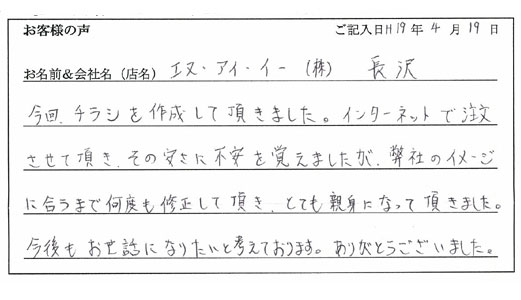 お客様の声 ご記入日H19年4月19日
お名前&会社名（店名） エヌ・アイ・イー (株) 長沢
今回、チラシを作成して頂きました。インターネットで注文
させて頂き、その安さに不安を覚えましたが、弊社のイメージ
に合うまで何度も修正して頂き、とても親身になって頂きました。
今後もお世話になりたいと考えております。ありがとうございました。